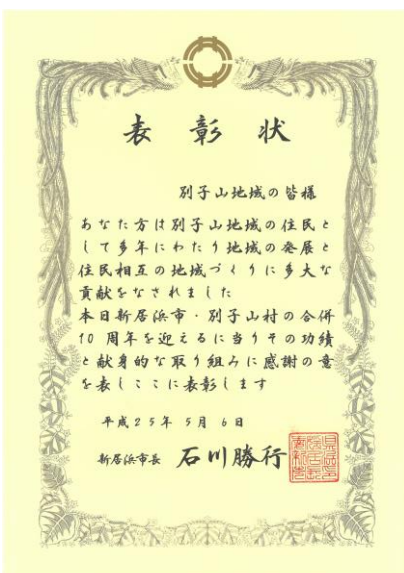 表彰状
別子山地域の皆様
あなた方は別子山地域の住民と
して多年にわたり地域の発展と
住民相互の地域づくりに多大な
貢献をなされました
本日新居浜市・別子山村の合併
10周年を迎えるに当りその功績
と献身的な取り組みに感謝の意
を表しここに表彰します
平成25年5月6日
新居浜市長 石川勝行